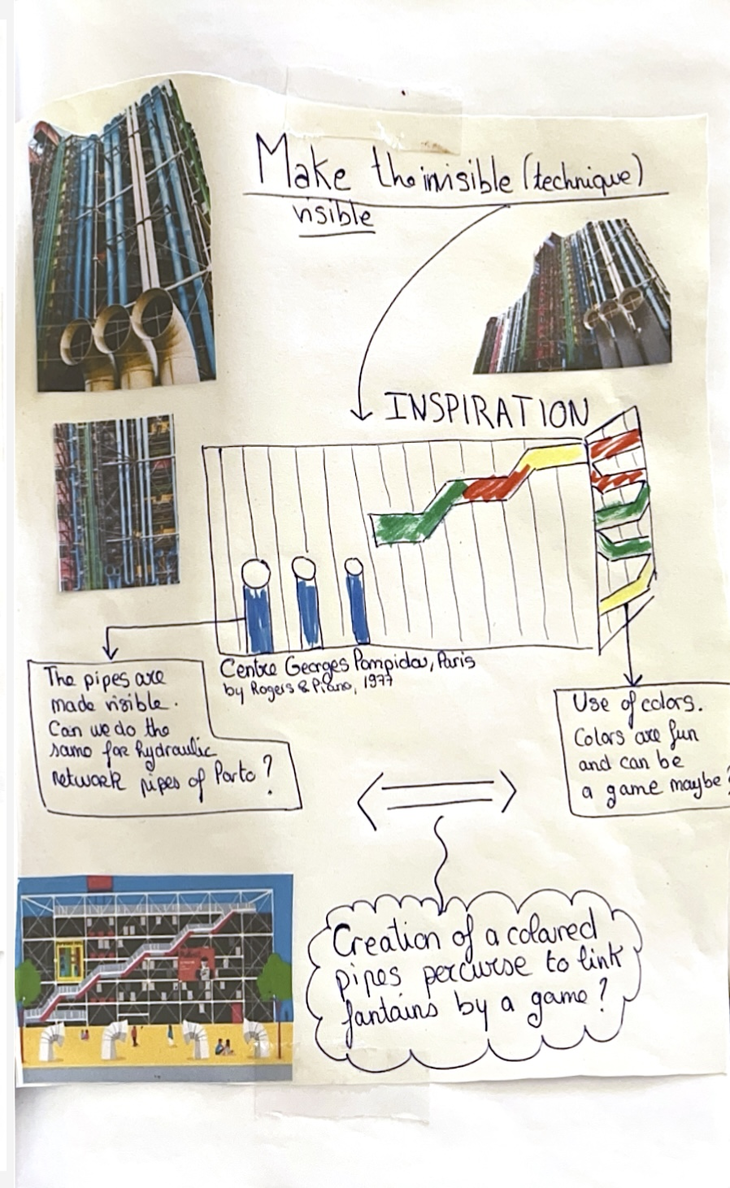 Make the invisible (technique)
visible
INSPIRATION
Centre Georges Pompidou, Paris
by Rogers & Piano, 1977
The pipes are
made visible.
Can we do the
same for hydraulic
network pipes of Porto?
Use of colors.
Colors are fun
and can be
a game maybe?
Creation of a colored
pipes percurse to link
fontains by a game?